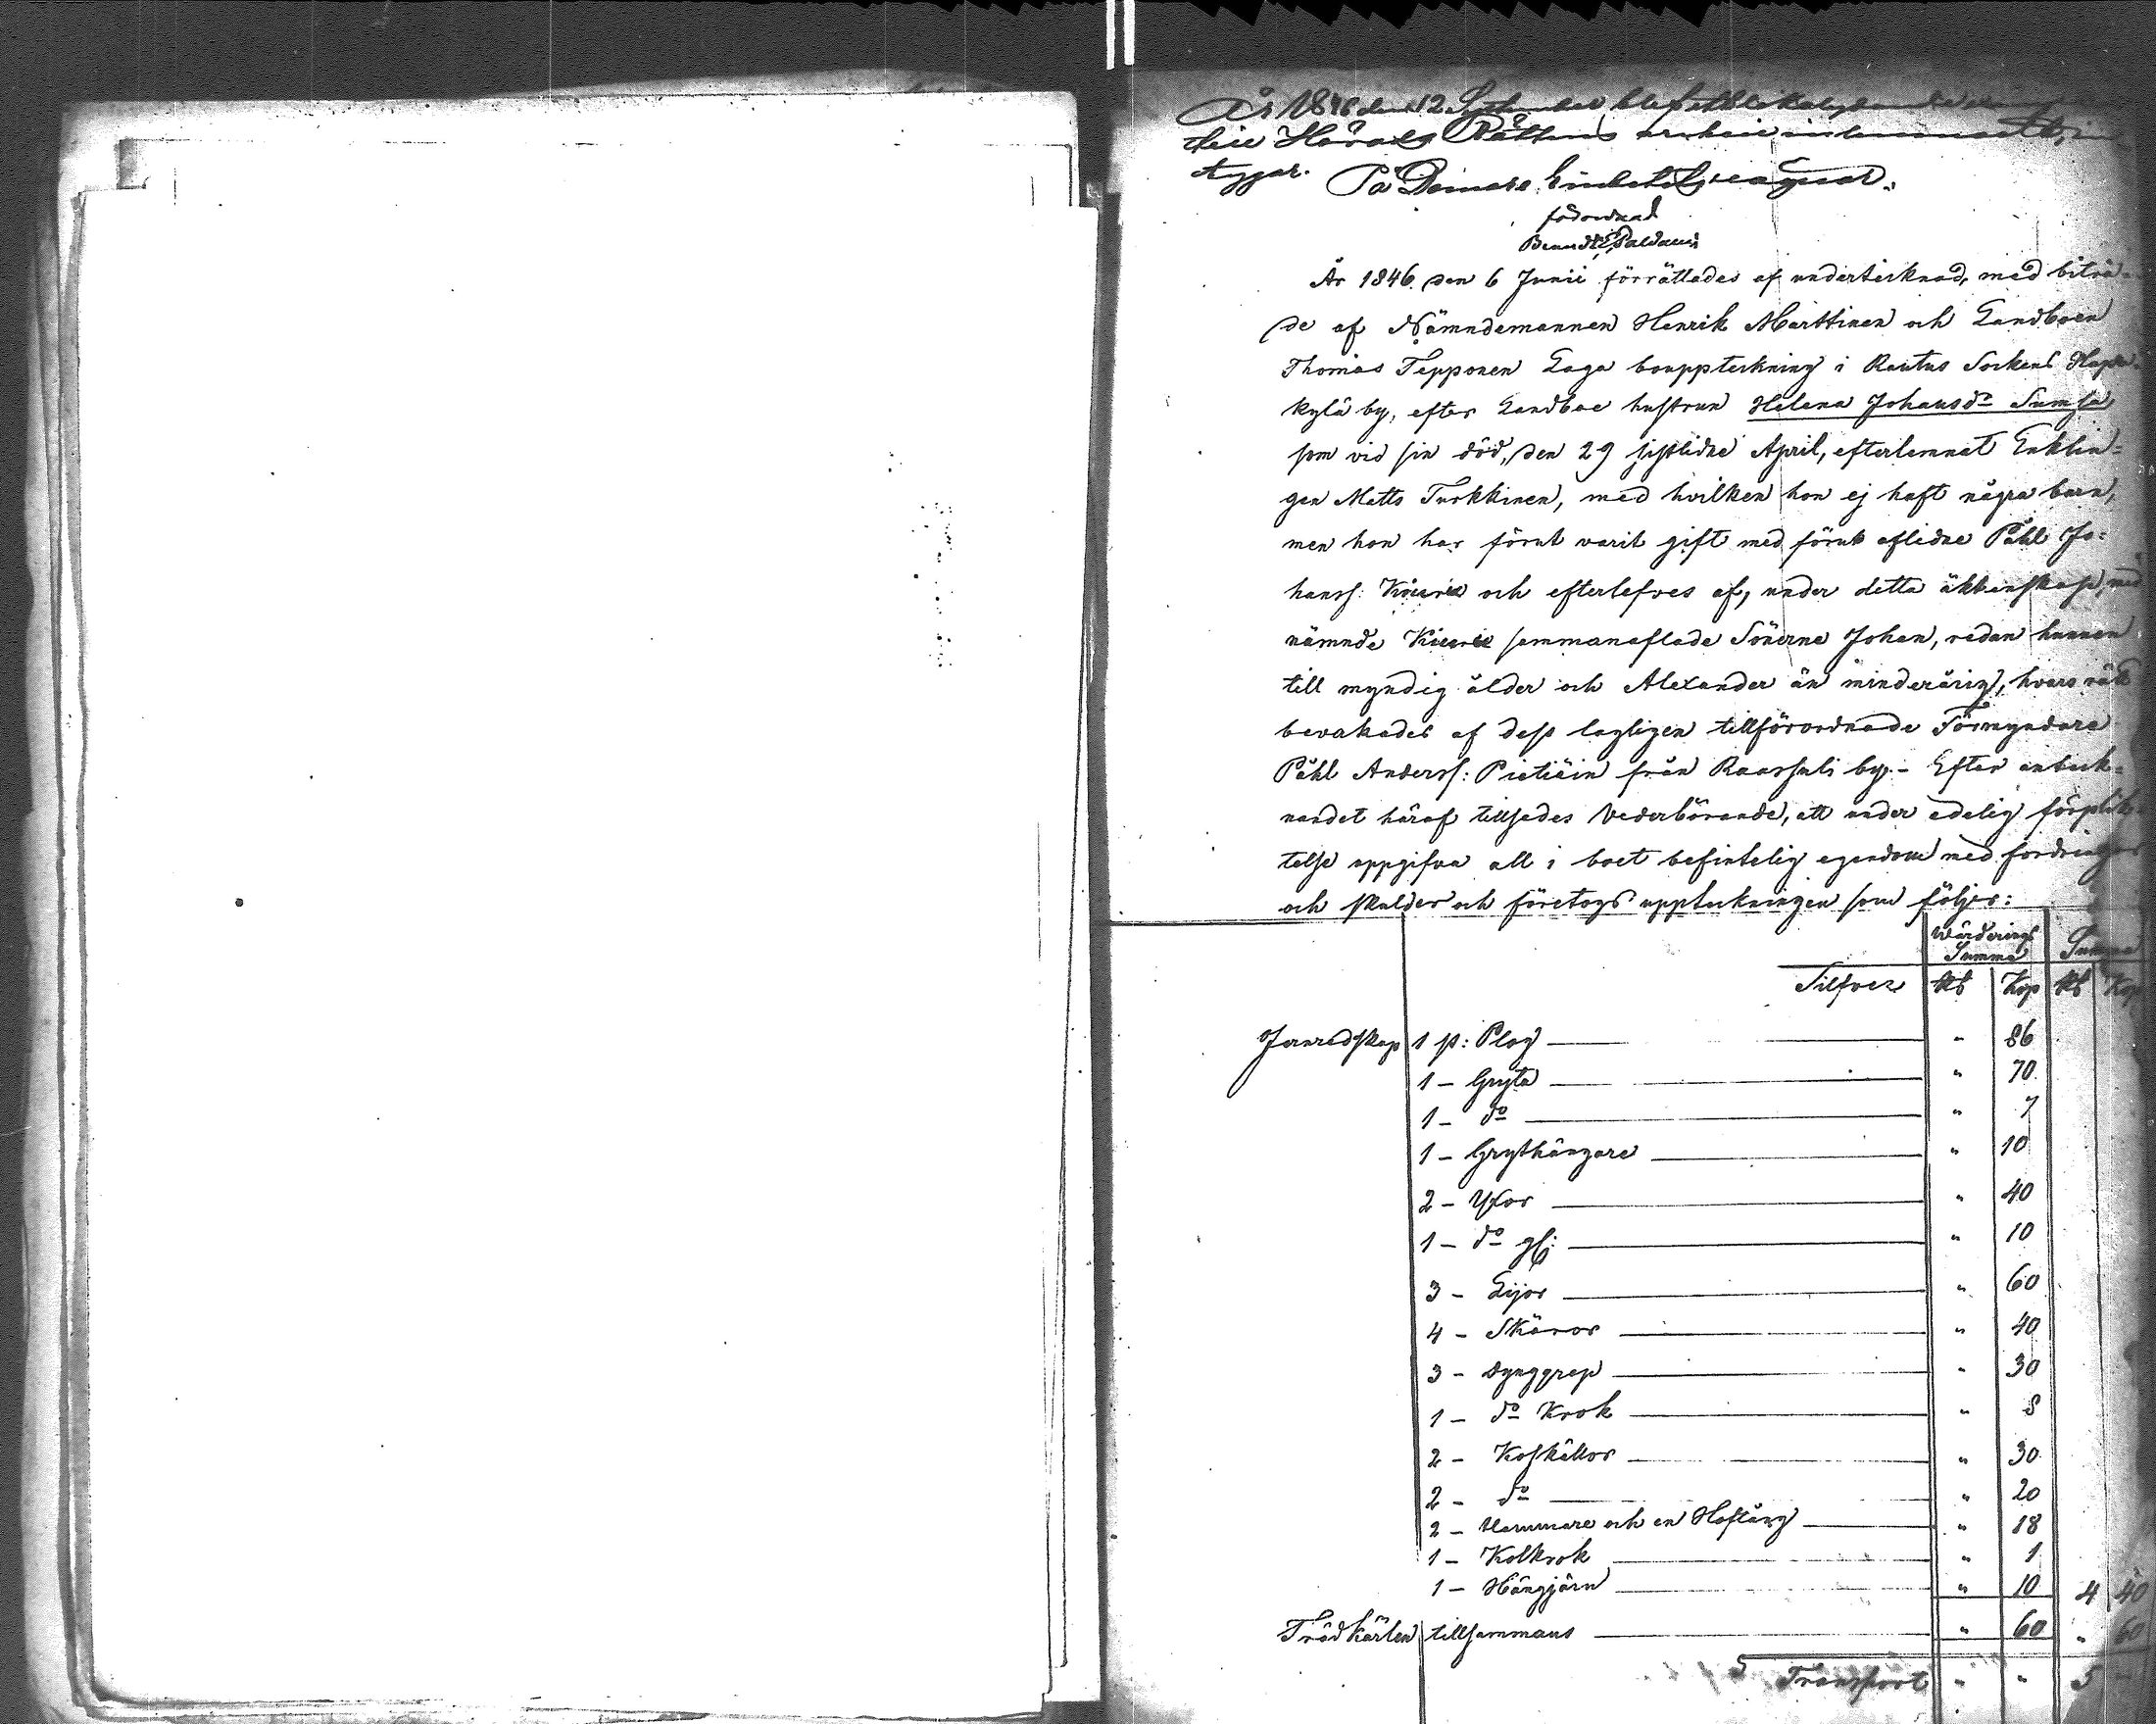 År 1846 den 12 September blef
till Härads Rättens
tygar.
På Domare Embetets vägnar.
förordnad
År 1846. den 6 Junii förrättades af undertecknad, med biträ-
de af Nämndemannen Henrik Marttinen och Landboen
Thomas Tepponen Laga bouppteckning i Rautus Sockens Hapa-
kylä by, efter Landboe hustrun Helena Johansdr
som vid sin död, den 29 sistlidne April, efterlemnat Enklin-
gen Matts Turkkinen, med hvilken hon ej haft några barn,
men hon har förut varit gift med förut aflidne Påhl Jo-
hanss: och efterlefves af, under detta äktenskap, med
nämnde sammanaflade Sönerne Johan, redan hunnen
till myndig ålder och Alexander än minderårig, hvars rätt
bevakades af dess lagligen tillförordnade Förmyndare
Påhl Anderss: Pietiäin från Raassuli by.- Efter anteck-
nandet häraf tillsades Vederbörande, att under edelig förplik-
telse uppgifva all i boet befintelig egendom med fordringar
och skulder och företogs uppteckningen som följer:
Wärderings Summa Summa
Silfver Rb Kop Rb Kop
Jernredskap 1 st: Plog " 86
1 - Gryta " 70.
1 - do " 7
1 - Grythängare " 10
2 - Yxor " 40
1 - do gl: " 10
3 - Lijor " 60
4 - Skäror " 40
3 - Dynggrep " 30
1 - do Krok " 8
2 - Koskällor " 30
2 - do " 20
2 - Hammare och en Hoftång " 18
1 - Kolkrok " 1
1 - Hängjärn " 10 4 40
Trädkärlen tillsammans " 60 " 60
Transport " " 5 "